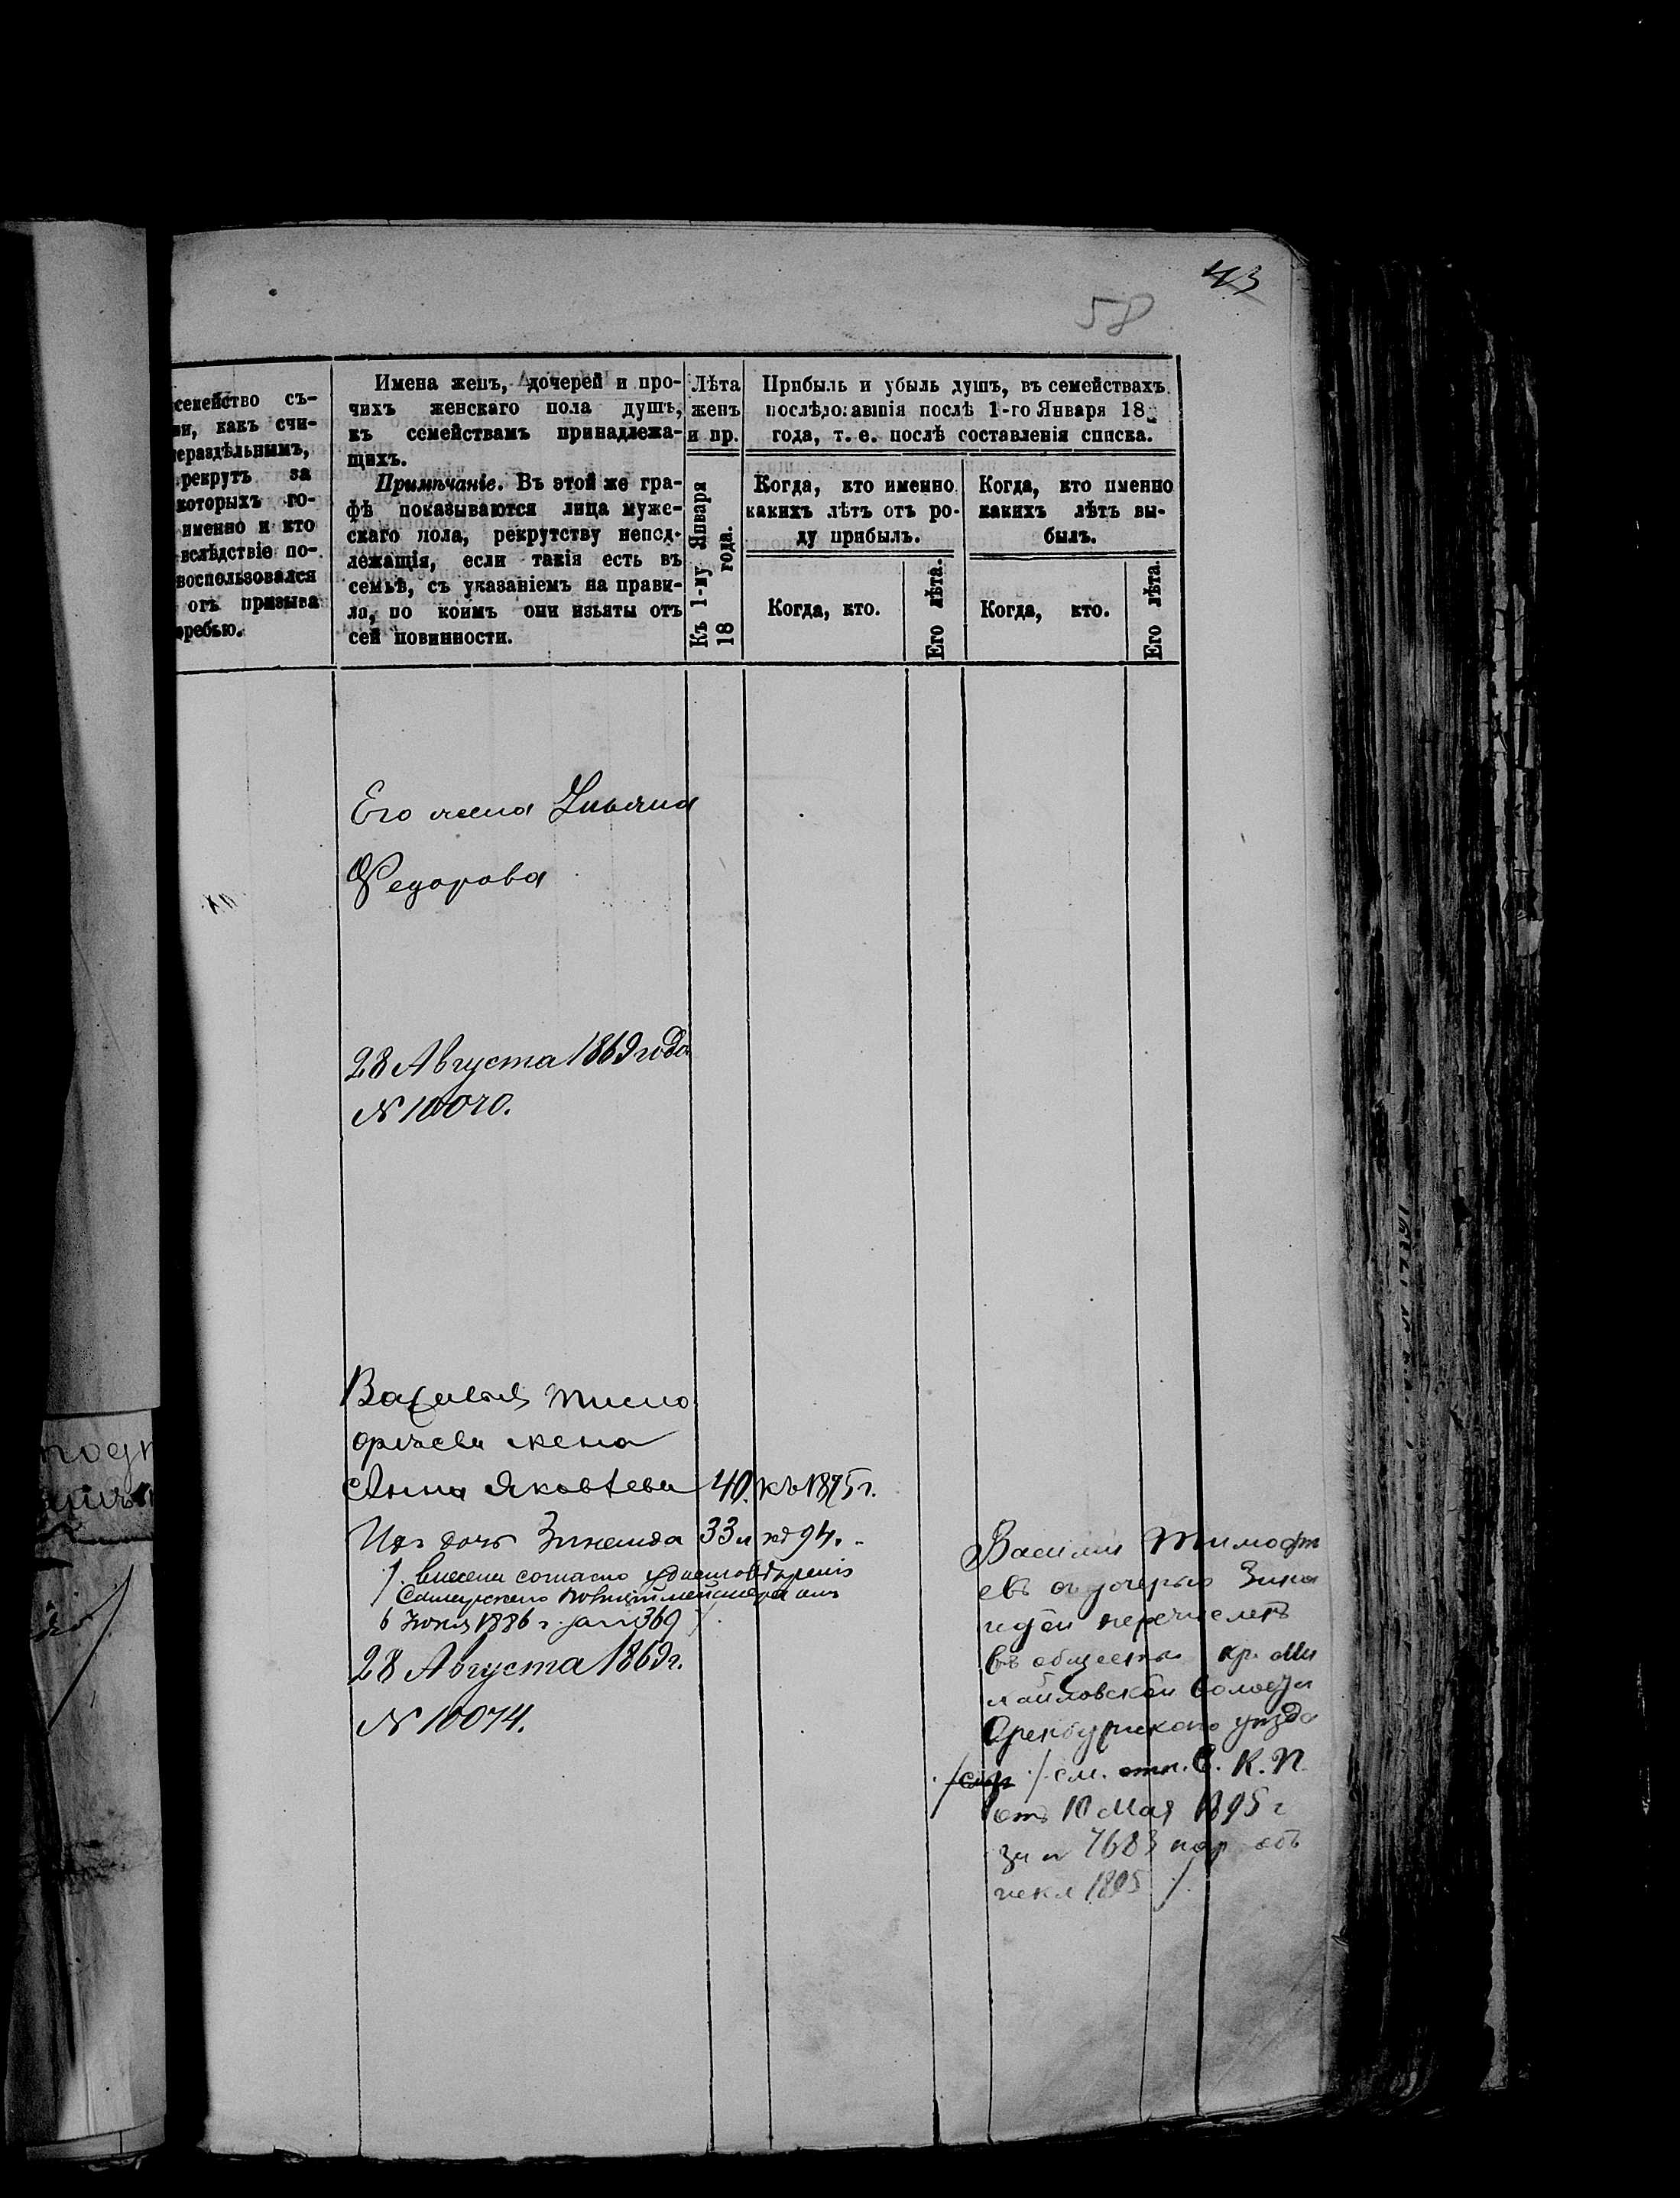 43
58
семейство съ-
ми, какъ счи-
нераздѣльнымъ,
рекрутъ за
которыхъ го-
именно и кто
вслѣдствіе по-
воспользовался
отъ призыва
жребью.
Имена женъ, дочерей и про-
чихъ женскаго пола душъ,
къ семействамъ принадлежа-
щихъ.
Примѣчаніе. Въ этой же гра-
фѣ показываются лица муже-
скаго пола, рекрутству непод-
лежащія, если такія есть въ
семьѣ, съ указаніемъ на прави-
ла, по коимъ они изъяты отъ
сей повинности.
Лѣта
женъ
и пр.
Къ 1-му Января
18 года.
Прибыль и убыль душъ, въ семействахъ
послѣдовавшія послѣ 1-го Января 18
года, т. е. послѣ составленія списка.
Когда, кто именно
какихъ лѣтъ отъ ро-
ду прибылъ.
Когда, кто именно
какихъ лѣтъ вы-
былъ.
Когда, кто.
Его лѣта.
Когда, кто.
Его лѣта.
Его жена Ульяна
Федорова
28 Августа 1869 года
N 10070.
Василья Тимо
фѣева жена
Анна Яковлева 40. къ 1875 г.
Ихъ дочь Зинаида 33 л. къ 94.
/. внесена согласно удостовѣренія
Самарскаго Полиціймейстера отъ
6 Июня 1886 г. за N 369 /
28 Августа 1869 г.
N 10074.
Василій Тимофѣ
евъ съ дочерью Зина
идой перечисленъ
въ общество кр. Ми
хайловской волости
Оренбургскаго уѣзда
/. см. отн. С. К. П.
отъ 10 Мая 1895 г
за N 7683 нар объ
1895 /.